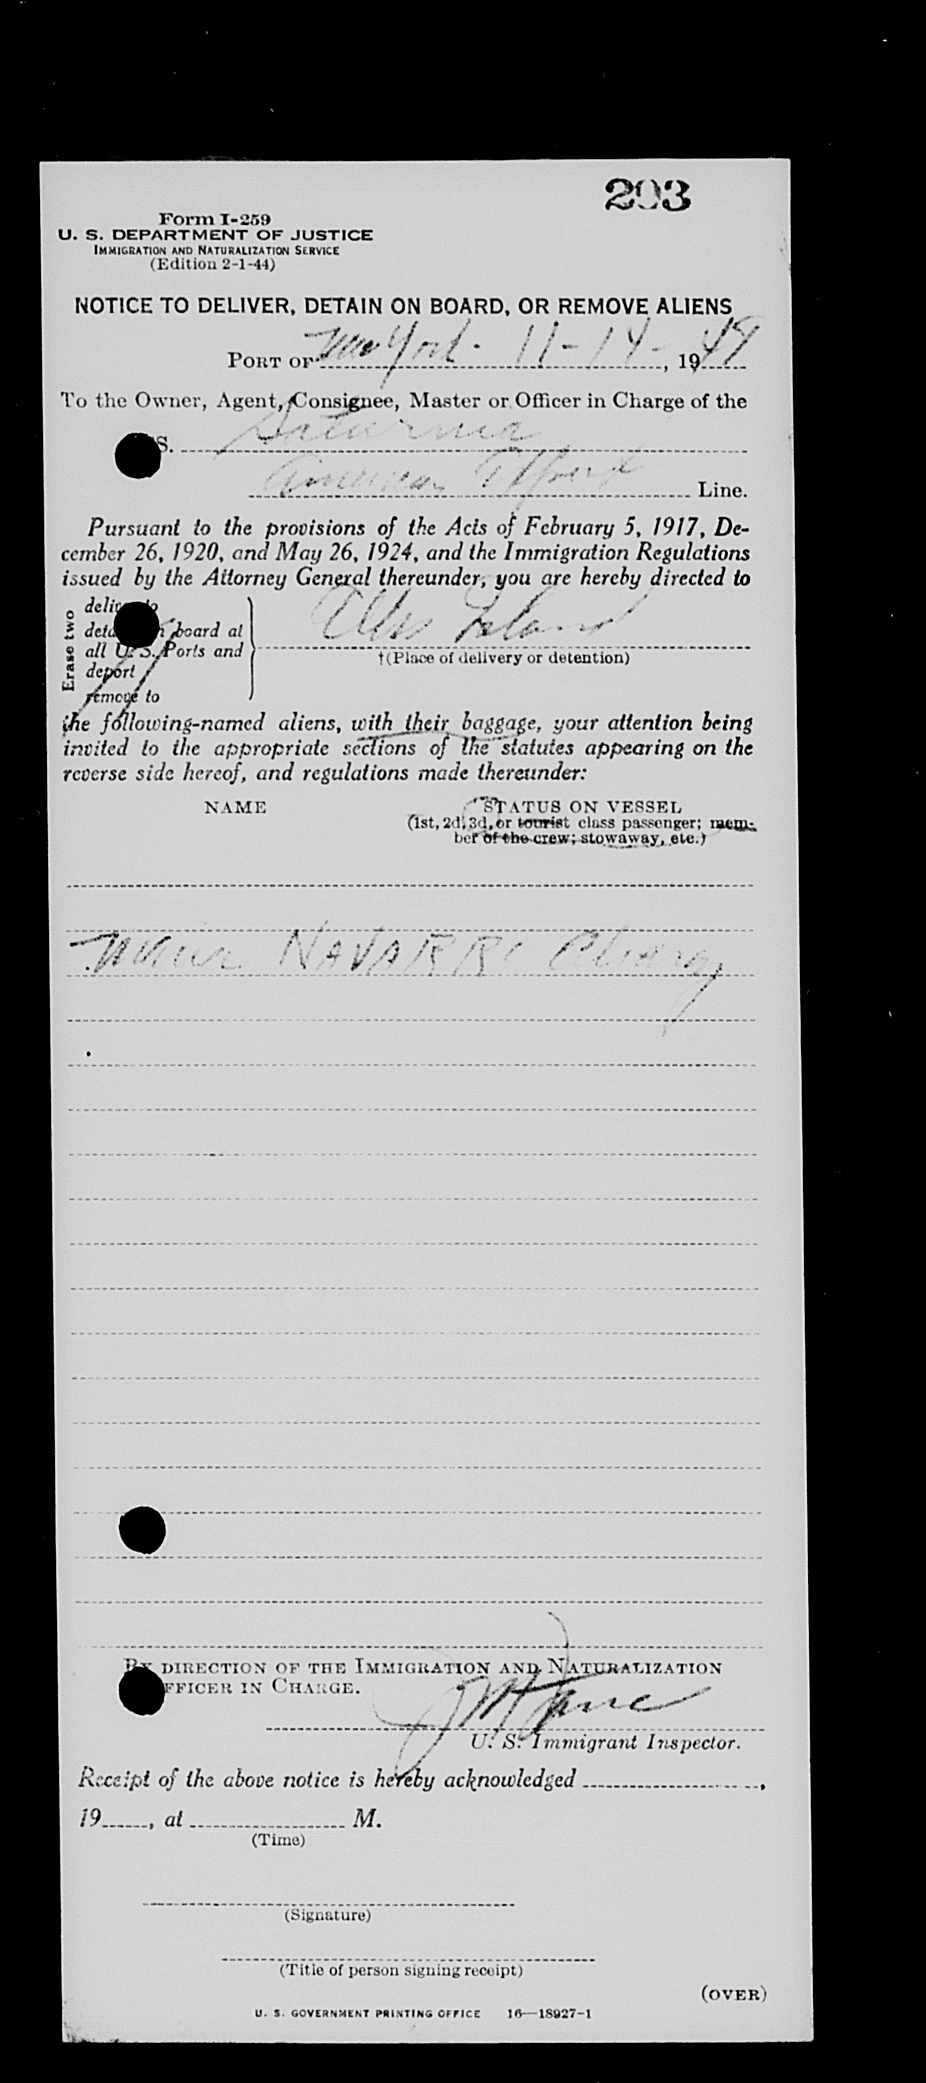 203
Form I-259
U. S. DEPARTMENT OF JUSTICE
IMMIGRATION AND NATURALIZATION SERVICE
(Edition 2-1-44)
NOTICE TO DELIVER, DETAIN ON BOARD, OR REMOVE ALIENS
PORT OF New York - 11-14-, 1949
To the Owner, Agent, Consignee, Master or Officer in Charge of the
S. Saturnia
American Export Line.
Pursuant to the provisions of the Acts of February 5, 1917, De-
cember 26, 1920, and May 26, 1924, and the Immigration Regulations
issued by the Attorney General thereunder, you are hereby directed to
Erase two
deliver to
detain on board at
all U. S. Ports and
deport
remove to
Ellis Island
†(Place of delivery or detention)
the following-named aliens, with their baggage, your attention being
invited to the appropriate sections of the statutes appearing on the
reverse side hereof, and regulations made thereunder:
NAME STATUS ON VESSEL
(1st, 2d, 3d, or tourist class passenger; mem-
ber of the crew; stowaway, etc.)
NAVARRO
BY DIRECTION OF THE IMMIGRATION AND NATURALIZATION
OFFICER IN CHARGE.
U. S. Immigrant Inspector.
Receipt of the above notice is hereby acknowledged ,
19 , at M.
(Time)
(Signature)
(Title of person signing receipt)
(OVER)
U. S. GOVERNMENT PRINTING OFFICE 16—18927-1